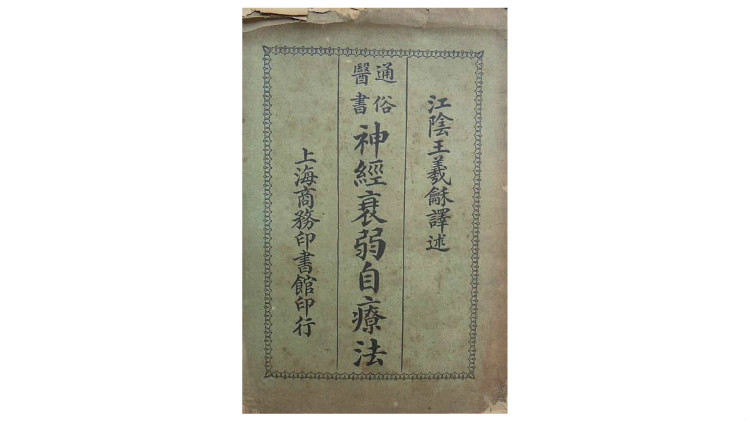 江陰王羲龢譯述
通俗
醫書
神經衰弱自療法
上海商務印書館印行